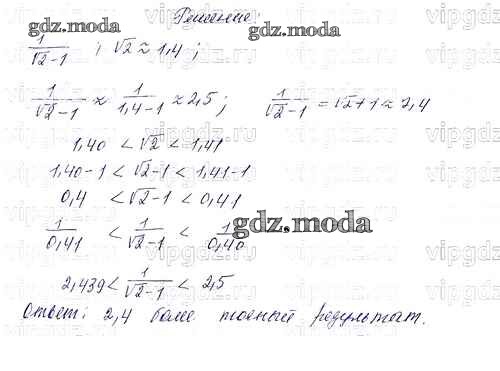 Решение:
gdz.moda gdz.moda
1/(√2-1) ; √2 ≈ 1,4 ;
1/(√2-1) ≈ 1/(1,4-1) ≈ 2,5 ; 1/(√2-1) = √2+1 ≈ 2,4
1,40 < √2 < 1,41
1,40-1 < √2-1 < 1,41-1
0,4 < √2-1 < 0,41
1/0,41 < 1/(√2-1) < 1/0,40
gdz.moda
2,439 < 1/(√2-1) < 2,5
Ответ: 2,4 более точный результат.